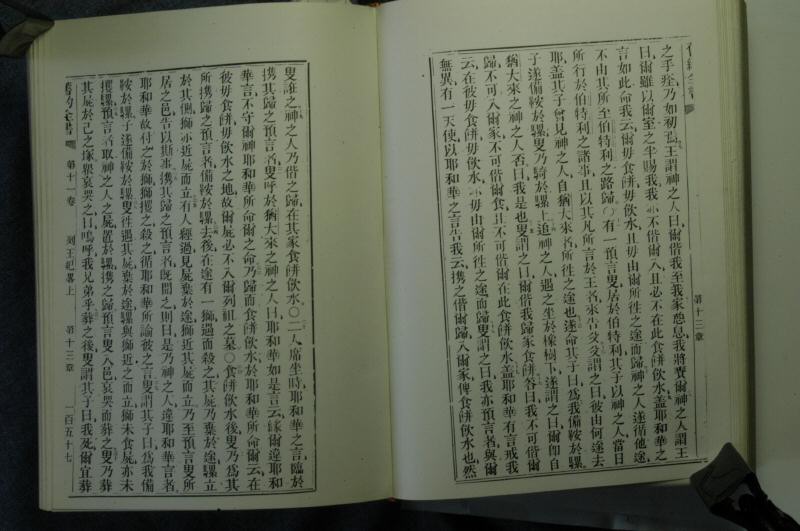 之手痊乃如初焉王謂神之人曰爾偕我至我家憩息我將賚爾神之人謂王
曰爾雖以爾室之半賜我我亦不偕爾入且必不在此食餅飲水蓋耶和華之
言如此命我云爾毋食餅毋飲水且毋由爾所徃之途而歸神之人遂循他途
不由其所至伯特利之路歸〇有一預言叟居於伯特利其子以神之人當日
所行於伯特利之諸事且以其凡所言於王者來告父父謂之曰彼由何途去
耶蓋其子曾見神之人自猶大來者所徃之途也遂命其子曰爲我備鞍於騾
子遂備鞍於騾叟乃騎於騾上追神之人遇之坐於橡樹下遂謂之曰爾卽自
猶大來之神之人否曰我是也叟謂之曰爾偕我歸我家食餅答曰我不可偕爾
歸不可入爾家不可偕爾食且不可偕爾在此食餅飲水蓋耶和華有言戒我
云在彼毋食餅毋飲水亦毋由爾所徃之途而歸叟謂之曰我亦預言者與爾
無異有一天使以耶和華之言告我云攜之偕爾歸入爾家俾食餅飲水也然
第十三章
叟誑之神之人乃偕之歸在其家食餅飲水〇二人席坐時耶和華之言臨於
攜其歸之預言者叟呼於猶大來之神之人曰耶和華如是言云緣爾違耶和
華言不守爾神耶和華所命爾之命乃歸而食餅飲水於耶和華所命爾云在
彼毋食餅毋飲水之地故爾屍必不入爾列祖之墓〇食餅飲水後叟乃爲其
所攜歸之預言者備鞍於騾去後在途有一獅遇而殺之其屍乃棄於途騾立
於其側獅亦近屍而立有人經過見屍棄於途獅近其屍而立乃至預言叟所
居之邑告以斯事攜其歸之預言者旣聞之則曰是乃神之人違耶和華言者
耶和華故付之於獅獅攫之殺之循耶和華所諭彼之言叟謂其子曰爲我備
鞍於騾子遂備鞍於騾叟徃遇其屍棄於途騾與獅近之而立獅未食屍亦未
攫騾預言者取神之人之屍置於騾攜之歸預言叟入邑哀哭而葬之叟乃葬
其屍於己之塚衆哀哭之曰嗚呼我兄弟乎葬之後叟謂其子曰我死爾宜葬
舊約全書
第十一卷
列王紀畧上
第十三章
一百五十七